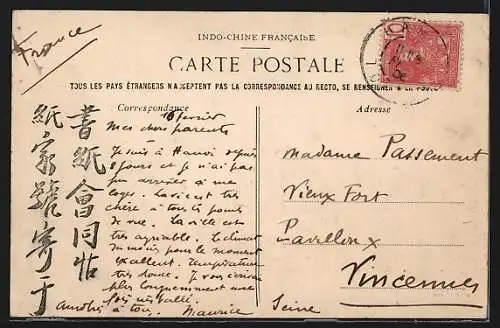 France
INDO-CHINE FRANÇAISE
CARTE POSTALE
TOUS LES PAYS ÉTRANGERS N'ACCEPTENT PAS LA CORRESPONDANCE AU RECTO, SE RENSEIGNER A LA POSTE
Correspondance
Adresse
書紙會同
紙家號寄于
16 février
Mes chers parents
Je suis à Hanoi depuis
8 jours et je n'ai pas
pu arriver à me
loger. La vie est très
chère à tous les points
de vue. La ville est
très agréable. Le climat
du moins pour le moment
excellent. Température
très douce. Je vous écrirai
plus longuement une
fois installé.
Amitiés à tous. Maurice
Madame Passement
Vieux Fort
Pavillon x
Vincennes
Seine